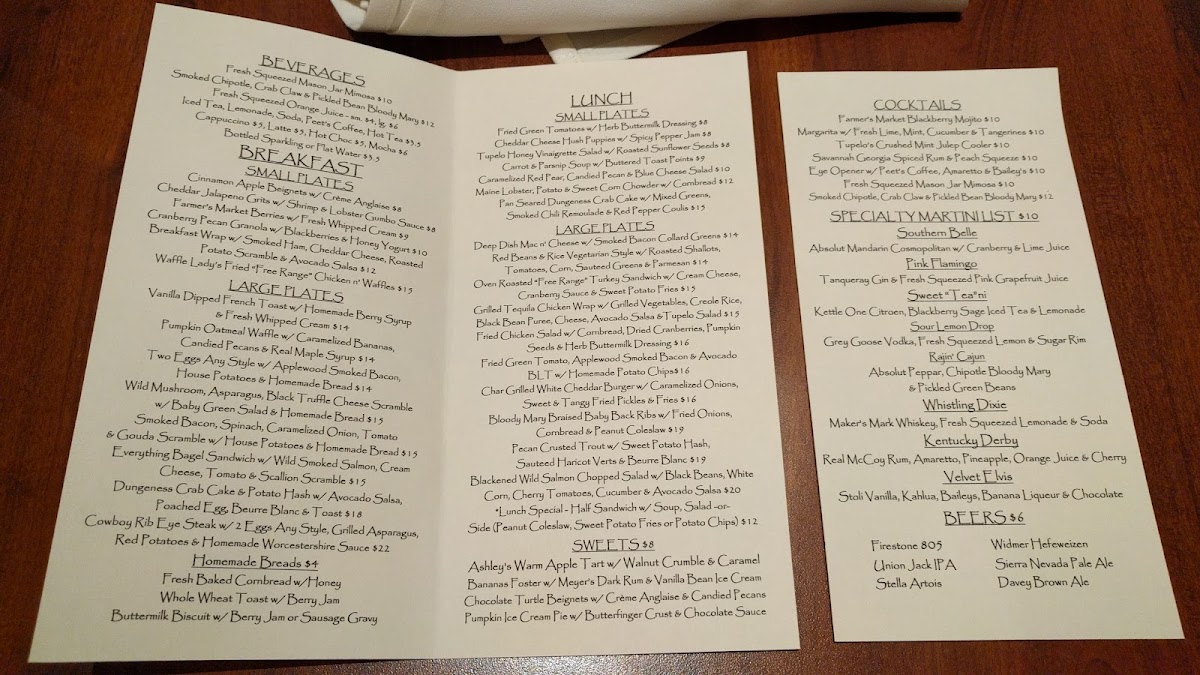 BEVERAGES
Fresh Squeezed Mason Jar Mimosa $10
Smoked Chipotle, Crab Claw & Pickled Bean Bloody Mary $12
Fresh Squeezed Orange Juice - sm. $4, lg. $6
Iced Tea, Lemonade, Soda, Peet's Coffee, Hot Tea $3.5
Cappuccino $5, Latte $5, Hot Choc $5, Mocha $6
Bottled Sparkling or Flat Water $3.5
BREAKFAST
SMALL PLATES
Cinnamon Apple Beignets w/ Crème Anglaise $8
Cheddar Jalapeno Grits w/ Shrimp & Lobster Gumbo Sauce $8
Farmer's Market Berries w/ Fresh Whipped Cream $9
Cranberry Pecan Granola w/ Blackberries & Honey Yogurt $10
Breakfast Wrap w/ Smoked Ham, Cheddar Cheese, Roasted
Potato Scramble & Avocado Salsa $12
Waffle Lady's Fried "Free Range" Chicken n' Waffles $15
LARGE PLATES
Vanilla Dipped French Toast w/ Homemade Berry Syrup
& Fresh Whipped Cream $14
Pumpkin Oatmeal Waffle w/ Caramelized Bananas,
Candied Pecans & Real Maple Syrup $14
Two Eggs Any Style w/ Applewood Smoked Bacon,
House Potatoes & Homemade Bread $14
Wild Mushroom, Asparagus, Black Truffle Cheese Scramble
w/ Baby Green Salad & Homemade Bread $15
Smoked Bacon, Spinach, Caramelized Onion, Tomato
& Gouda Scramble w/ House Potatoes & Homemade Bread $15
Everything Bagel Sandwich w/ Wild Smoked Salmon, Cream
Cheese, Tomato & Scallion Scramble $15
Dungeness Crab Cake & Potato Hash w/ Avocado Salsa,
Poached Egg, Beurre Blanc & Toast $18
Cowboy Rib Eye Steak w/ 2 Eggs Any Style, Grilled Asparagus,
Red Potatoes & Homemade Worcestershire Sauce $22
Homemade Breads $4
Fresh Baked Cornbread w/Honey
Whole Wheat Toast w/ Berry Jam
Buttermilk Biscuit w/ Berry Jam or Sausage Gravy
LUNCH
SMALL PLATES
Fried Green Tomatoes w/ Herb Buttermilk Dressing $8
Cheddar Cheese Hush Puppies w/ Spicy Pepper Jam $8
Tupelo Honey Vinaigrette Salad w/ Roasted Sunflower Seeds $8
Carrot & Parsnip Soup w/ Buttered Toast Points $9
Caramelized Red Pear, Candied Pecan & Blue Cheese Salad $10
Maine Lobster, Potato & Sweet Corn Chowder w/ Cornbread $12
Pan Seared Dungeness Crab Cake w/ Mixed Greens,
Smoked Chili Remoulade & Red Pepper Coulis $15
LARGE PLATES
Deep Dish Mac n' Cheese w/ Smoked Bacon Collard Greens $14
Red Beans & Rice Vegetarian Style w/ Roasted Shallots,
Tomatoes, Corn, Sauteed Greens & Parmesan $14
Oven Roasted "Free Range" Turkey Sandwich w/ Cream Cheese,
Cranberry Sauce & Sweet Potato Fries $15
Grilled Tequila Chicken Wrap w/ Grilled Vegetables, Creole Rice,
Black Bean Puree, Cheese, Avocado Salsa & Tupelo Salad $15
Fried Chicken Salad w/ Cornbread, Dried Cranberries, Pumpkin
Seeds & Herb Buttermilk Dressing $16
Fried Green Tomato, Applewood Smoked Bacon & Avocado
BLT w/ Homemade Potato Chips$16
Char Grilled White Cheddar Burger w/ Caramelized Onions,
Sweet & Tangy Fried Pickles & Fries $16
Bloody Mary Braised Baby Back Ribs w/ Fried Onions,
Cornbread & Peanut Coleslaw $19
Pecan Crusted Trout w/ Sweet Potato Hash,
Sauteed Haricot Verts & Beurre Blanc $19
Blackened Wild Salmon Chopped Salad w/ Black Beans, White
Corn, Cherry Tomatoes, Cucumber & Avocado Salsa $20
*Lunch Special - Half Sandwich w/ Soup, Salad -or-
Side (Peanut Coleslaw, Sweet Potato Fries or Potato Chips) $12
SWEETS $8
Ashley's Warm Apple Tart w/ Walnut Crumble & Caramel
Bananas Foster w/ Meyer's Dark Rum & Vanilla Bean Ice Cream
Chocolate Turtle Beignets w/ Crème Anglaise & Candied Pecans
Pumpkin Ice Cream Pie w/ Butterfinger Crust & Chocolate Sauce
COCKTAILS
Farmer's Market Blackberry Mojito $10
Margarita w/ Fresh Lime, Mint, Cucumber & Tangerines $10
Tupelo's Crushed Mint Julep Cooler $10
Savannah Georgia Spiced Rum & Peach Squeeze $10
Eye Opener w/ Peet's Coffee, Amaretto & Bailey's $10
Fresh Squeezed Mason Jar Mimosa $10
Smoked Chipotle, Crab Claw & Pickled Bean Bloody Mary $12
SPECIALTY MARTINI LIST $10
Southern Belle
Absolut Mandarin Cosmopolitan w/ Cranberry & Lime Juice
Pink Flamingo
Tanqueray Gin & Fresh Squeezed Pink Grapefruit Juice
Sweet "Tea"ni
Kettle One Citroen, Blackberry Sage Iced Tea & Lemonade
Sour Lemon Drop
Grey Goose Vodka, Fresh Squeezed Lemon & Sugar Rim
Rajin' Cajun
Absolut Peppar, Chipotle Bloody Mary
& Pickled Green Beans
Whistling Dixie
Maker's Mark Whiskey, Fresh Squeezed Lemonade & Soda
Kentucky Derby
Real McCoy Rum, Amaretto, Pineapple, Orange Juice & Cherry
Velvet Elvis
Stoli Vanilla, Kahlua, Baileys, Banana Liqueur & Chocolate
BEERS $6
Firestone 805 Widmer Hefeweizen
Union Jack IPA Sierra Nevada Pale Ale
Stella Artois Davey Brown Ale